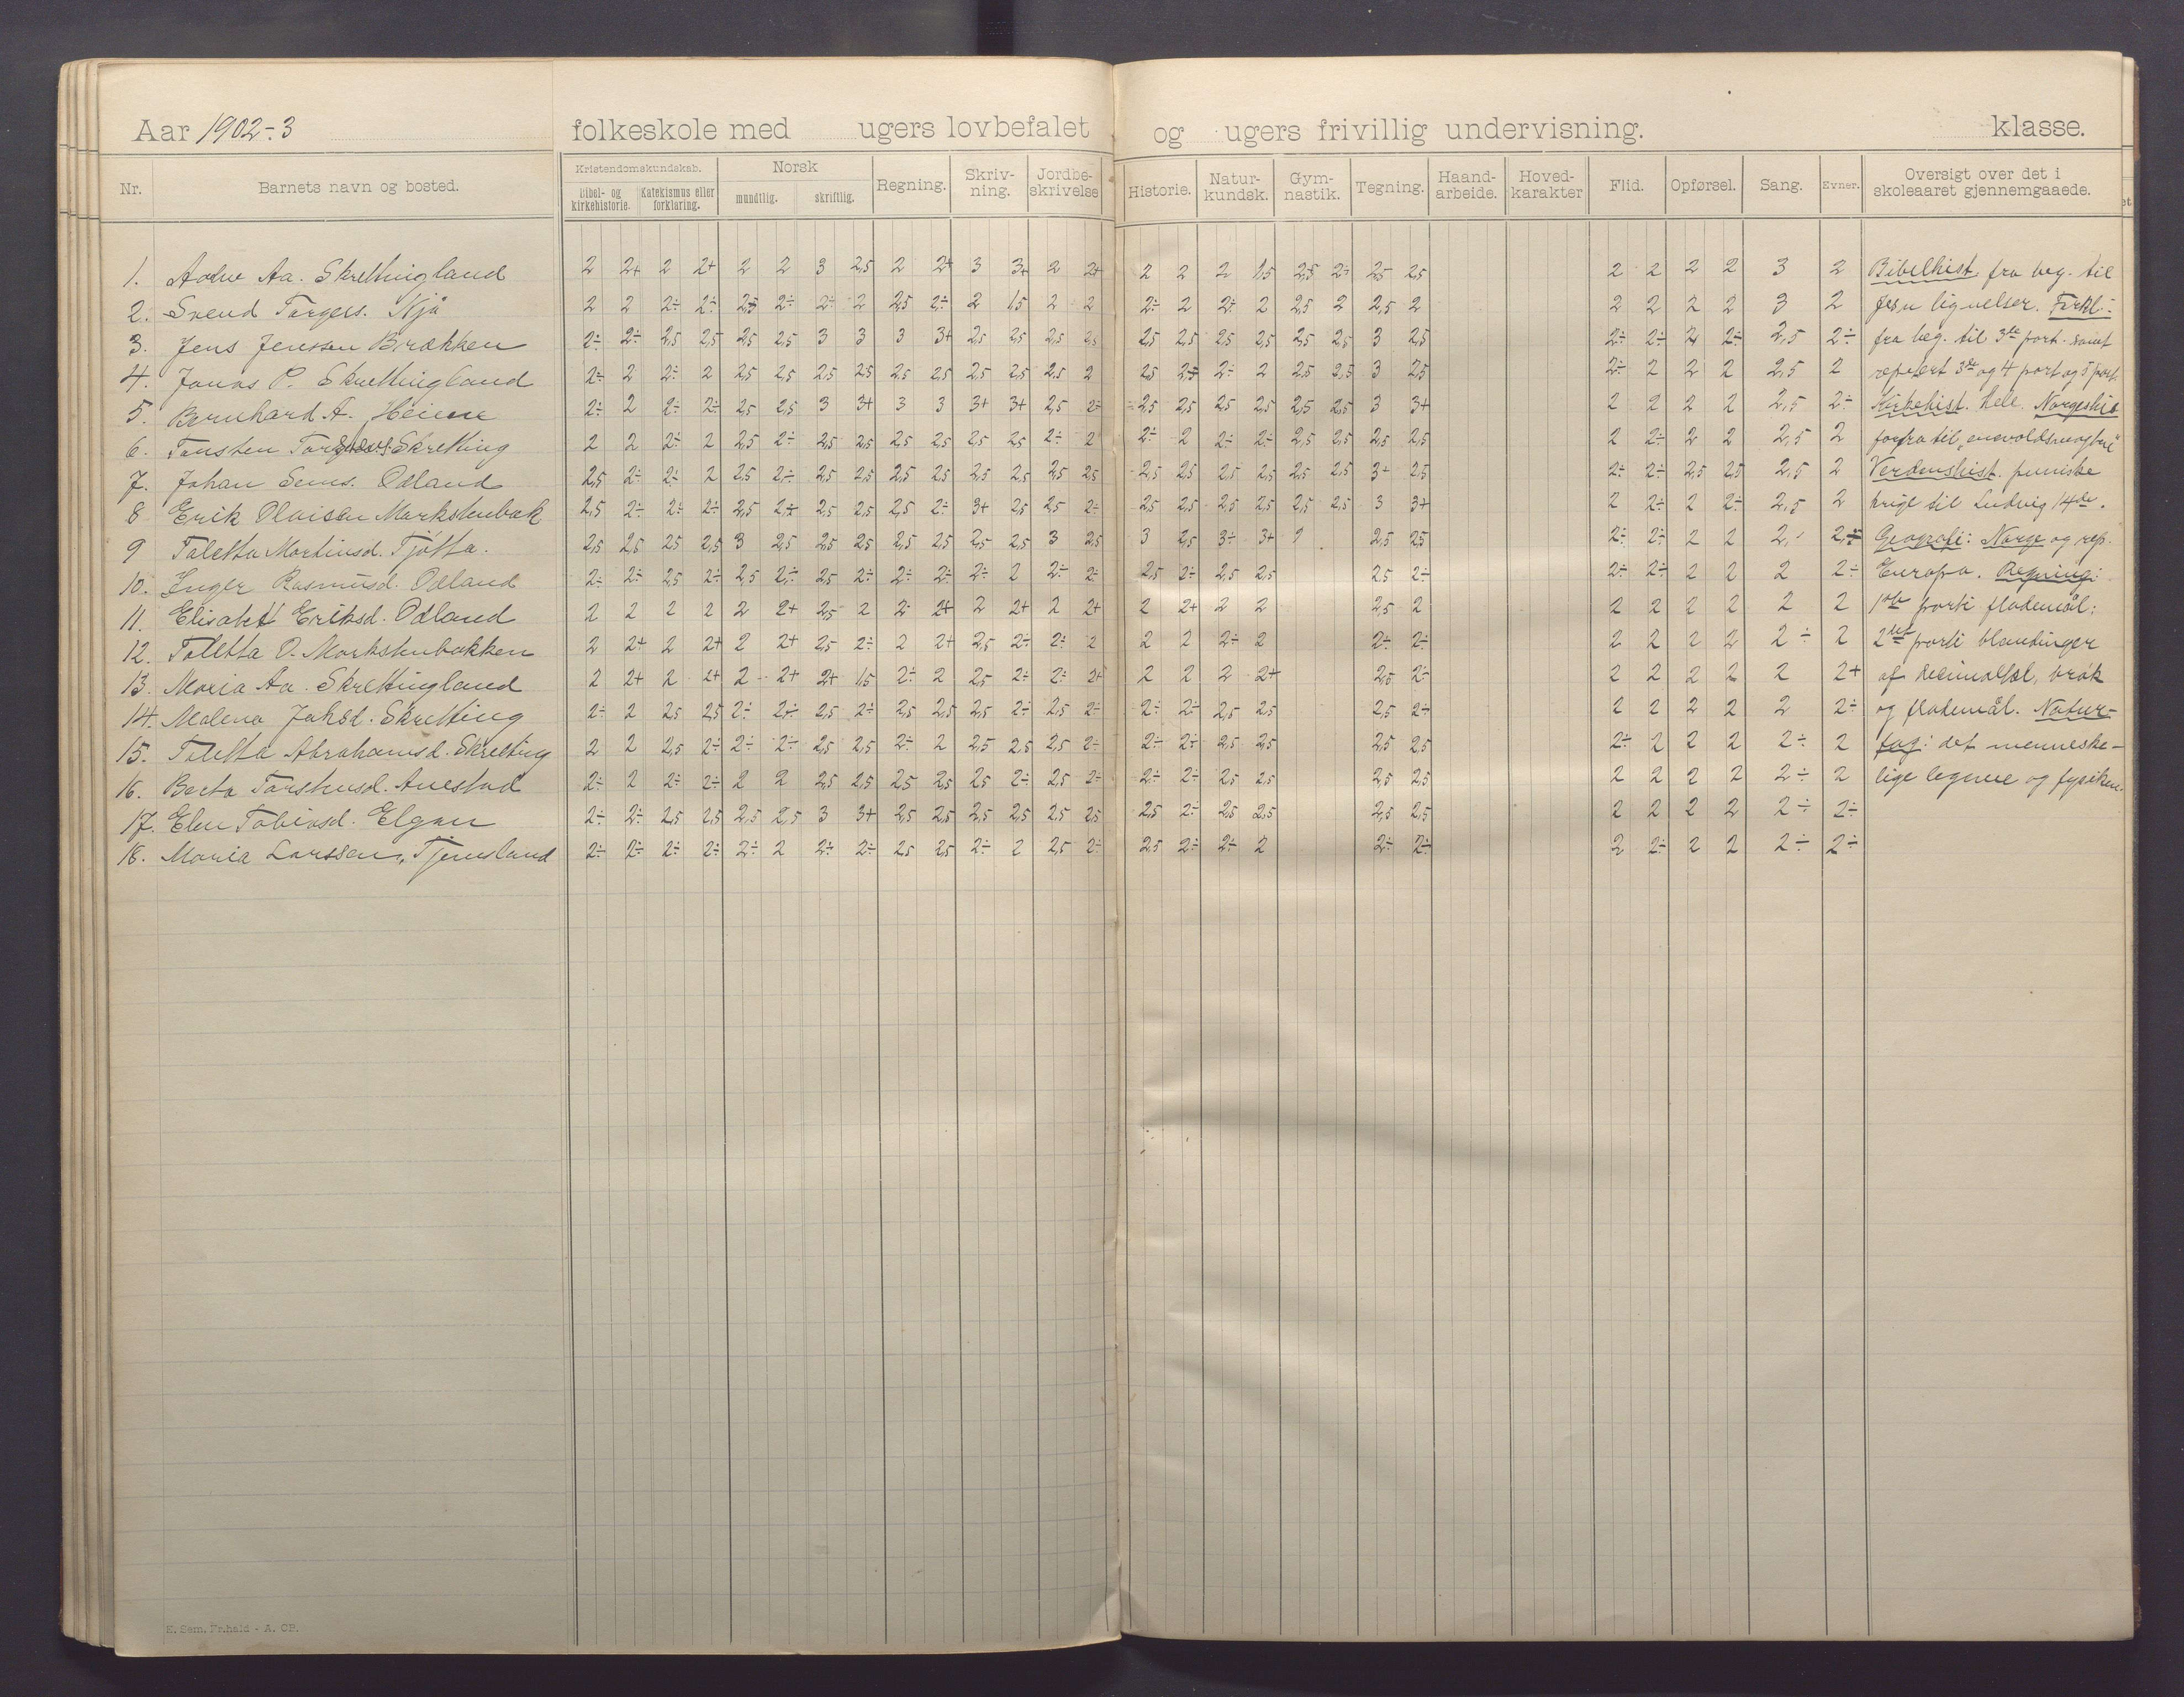 Aar 1902-3 folkeskole med ugers lovbefalet og ugers frivillig undervisning. klasse.
Nr. Barnets navn og bosted. Kristendomskundskab. Bibel- og kirkehistorie. Katekismus eller forklaring. Norsk mundtlig. skriftlig. Regning. Skriv-ning. Jordbe-skrivelse Historie. Natur-kundsk. Gym-nastik. Tegning. Haand-arbeide. Hoved-karakter Flid. Opførsel. Sang. Evner. Oversigt over det i skoleaaret gjennemgaaede.
1. Aa. Skrettingland 2 2+ 2 2+ 2 2 3 2,5 2 2+ 3 3+ 2 2+ 2 2 2 1,5 2,5 2÷ 2,5 2,5 2 2 2 2 3 2 Bibelhist. fra beg. til
2. Svend Torgers. Njå 2 2 2÷ 2÷ 2,5 2÷ 2÷ 2 2,5 2÷ 2 1,5 2 2 2÷ 2 2÷ 2 2,5 2 2,5 2 2 2 2 2 3 2 Jesu lignelser. Forkl.:
3. Jens Jenssen Brækken 2÷ 2÷ 2,5 2,5 2,5 2,5 3 3 3 3+ 2,5 2,5 2,5 2,5 2,5 2,5 2,5 2,5 2,5 2,5 3 2,5 2÷ 2÷ 2 2÷ 2,5 2÷ fra beg. til 3die part. samt
4. Jonas P. Skrettingland 2÷ 2 2÷ 2 2,5 2,5 2,5 2,5 2,5 2,5 2,5 2,5 2,5 2 2,5 2,5 2÷ 2 2,5 2,5 3 2,5 2÷ 2 2 2 2,5 2 repetert 3die og 4 part og 5 part.
5. Bernhard A. Heiene 2÷ 2 2÷ 2÷ 2,5 2,5 3 3+ 3 3 3+ 3+ 2,5 2÷ 2,5 2,5 2,5 2,5 2,5 2,5 3 3+ 2 2 2 2 2,5 2÷ Kirkehist. hele. Norgeshis
6. Skretting 2 2 2÷ 2 2,5 2÷ 2,5 2,5 2,5 2,5 2,5 2,5 2÷ 2 2÷ 2 2÷ 2÷ 2,5 2,5 2,5 2,5 2 2÷ 2 2 2,5 2 forfra til
7. Johan Odland 2,5 2÷ 2÷ 2 2,5 2÷ 2,5 2,5 2,5 2,5 2,5 2,5 2,5 2,5 2,5 2,5 2,5 2,5 2,5 2,5 3+ 2,5 2÷ 2÷ 2,5 2,5 2,5 2 Verdenshist. puniske
8 Erik Olaisen Markstenbak 2,5 2÷ 2÷ 2÷ 2,5 2÷ 2,5 2,5 2,5 2÷ 3+ 2,5 2,5 2÷ 2,5 2,5 2,5 2,5 2,5 2,5 3 3+ 2 2÷ 2 2÷ 2,5 2 krige til Ludvig 14de.
9 Taletta Martinsd. Tjøtta. 2,5 2,5 2,5 2,5 3 2,5 2,5 2,5 2,5 2,5 2,5 2,5 3 2,5 3 2,5 3÷ 3+ 2,5 2,5 2÷ 2÷ 2 2 2 Geografi: Norge og rep.
10. Inger Rasmusd. Odland 2÷ 2÷ 2,5 2÷ 2,5 2÷ 2,5 2÷ 2÷ 2÷ 2÷ 2 2÷ 2÷ 2,5 2÷ 2,5 2,5 2,5 2÷ 2÷ 2÷ 2 2 2 2÷ Europa. Regning:
11. Elisabet Eriksd. Odland 2 2 2 2 2 2+ 2,5 2 2 2+ 2 2+ 2 2+ 2 2+ 2 2 2,5 2 2 2 2 2 2 2 1ste parti flademål:
12. Taletta O. Markstenbakken 2 2+ 2 2+ 2 2+ 2,5 2÷ 2 2+ 2,5 2÷ 2÷ 2 2 2 2÷ 2 2÷ 2÷ 2 2 2 2 2÷ 2 2det parti blandinger
13. Maria Aa. Skrettingland 2 2+ 2 2+ 2 2+ 2+ 1,5 2÷ 2 2,5 2÷ 2÷ 2+ 2 2 2 2+ 2,5 2÷ 2 2 2 2 2 2+ af desimaltal, brøk
14. Malena Jaksd. Skretting 2÷ 2 2,5 2,5 2÷ 2÷ 2,5 2÷ 2,5 2,5 2,5 2÷ 2,5 2÷ 2÷ 2÷ 2,5 2,5 2,5 2÷ 2 2 2 2 2 2÷ og flademål. Natur-
15. Taletta Abrahamsd. Skretting 2 2 2,5 2÷ 2÷ 2÷ 2,5 2,5 2÷ 2 2,5 2,5 2,5 2÷ 2÷ 2÷ 2,5 2,5 2,5 2,5 2÷ 2 2 2 2÷ 2 fag: det menneske-
16. Berta Torstensd. Auestad 2÷ 2 2÷ 2÷ 2 2 2,5 2,5 2,5 2,5 2,5 2÷ 2,5 2÷ 2÷ 2÷ 2,5 2,5 2,5 2,5 2 2 2 2 2÷ 2 lige legeme og fysiken.
17. Elen Tobiasd. Elgan 2÷ 2÷ 2,5 2,5 2,5 2,5 3 3+ 2,5 2,5 2,5 2,5 2,5 2,5 2,5 2÷ 2,5 2,5 2,5 2,5 2 2 2 2 2÷ 2÷
18. Maria Larssen, Tjemsland 2÷ 2÷ 2÷ 2÷ 2÷ 2 2÷ 2÷ 2,5 2,5 2÷ 2 2,5 2÷ 2,5 2÷ 2÷ 2 2÷ 2÷ 2 2÷ 2 2 2÷ 2÷
E. Sem, Fr.hald - A. CP.